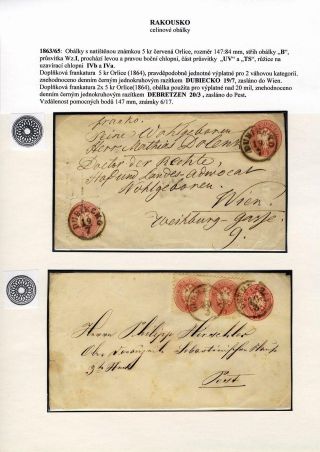 RAKOUSKO
celinové obálky
1863/65: Obálky s natištěnou známkou 5 kr červená Orlice, rozměr 147:84 mm, střih obálky "B",
průsvitka Wz.I, prochází levou a pravou boční chlopní, část průsvitky "UV" a "TS", růžice na
uzavírací chlopni IVb a IVa.
Doplňková frankatura 5 kr Orlice (1864), pravděpodobně jednotné výplatné pro 2 váhovou kategorii,
znehodnoceno denním černým jednokruhovým razítkem DUBIECKO 19/7, zasláno do Wien.
Doplňková frankatura 2x 5 kr Orlice(1864), obálka použita pro výplatné nad 20 mil, znehodnoceno
denním černým jednokruhovým razítkem DEBRETZEN 20/3, zasláno do Pest.
Vzdálenost pomocných bodů 147 mm, známky 6/17.
franko.
Seine Wohlgeboren
Herrn Mathias Dolenk
Doctor der Rechte,
Hof und Landes-Advocat
Wohlgeboren
Wien
Weihburg-Gasse
9.
DUBIECKO
19
7
Herrn Philipp Hirschler
Pest